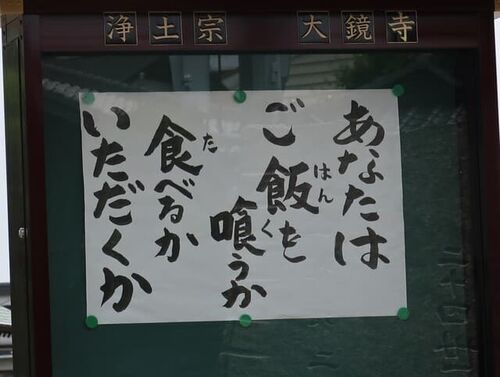 浄土宗 大鏡寺
あなたは
ご飯を
はん
喰うか
く
食べるか
た
いただくか